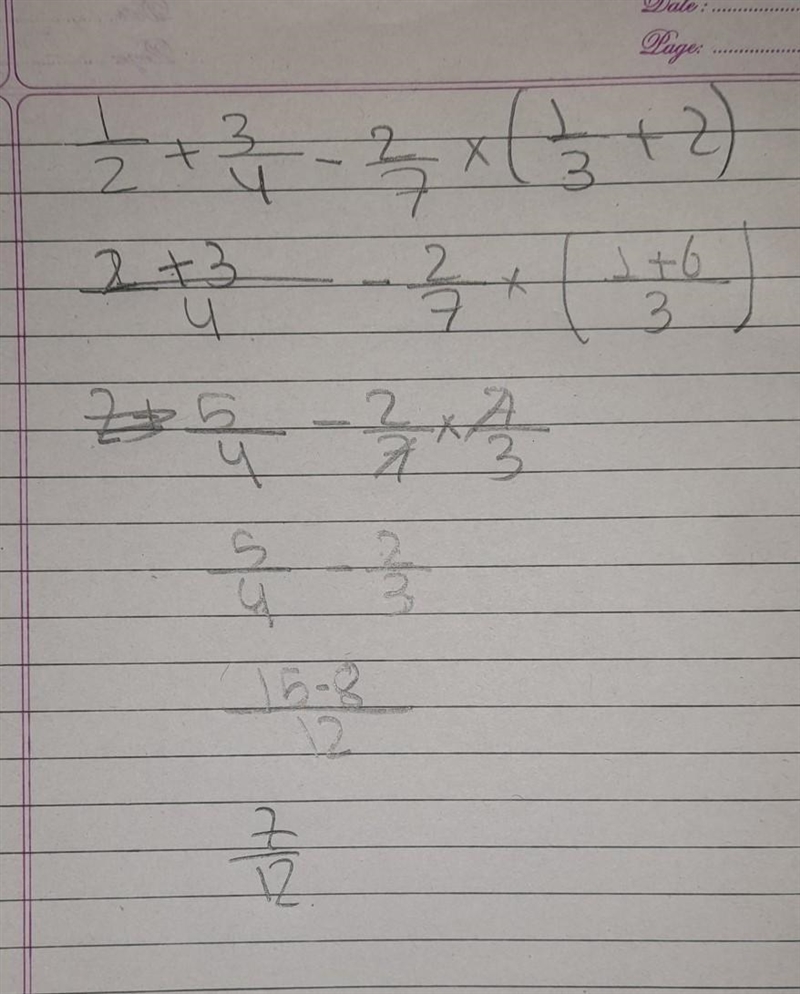 Date : ..................
Page: ..................
1/2 + 3/4 - 2/7 × (1/3 + 2)
2 + 3/4 - 2/7 × (1+6/3)
5/4 - 2/7 × 7/3
5/4 - 2/3
15-8/12
7/12